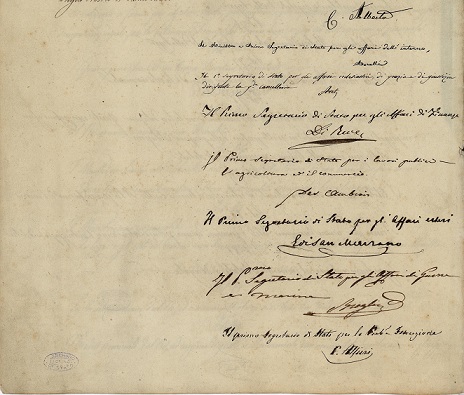 C. Alberto
Il Ministro e Primo Segretario di Stato per gli affari dell'interno,
Borelli
Il 1° segretario di Stato per gli affari ecclesiastici, di grazia e di giustizia
dirigente la G. cancelleria
Avet
Il Primo Segretario di Stato per gli Affari di Finanze
Di Revel
Il Primo Segretario di Stato per i lavori pubblici
l'agricoltura ed il commercio
Des Ambrois
Il Primo Segretario di Stato per gl'Affari esteri
E di San Marzano
Il P. Segretario di Stato per gli Affari di Guerra
e marina
Broglia
Il primo Segretario di Stato per la Pubb.a Istruzione
C. Alfieri